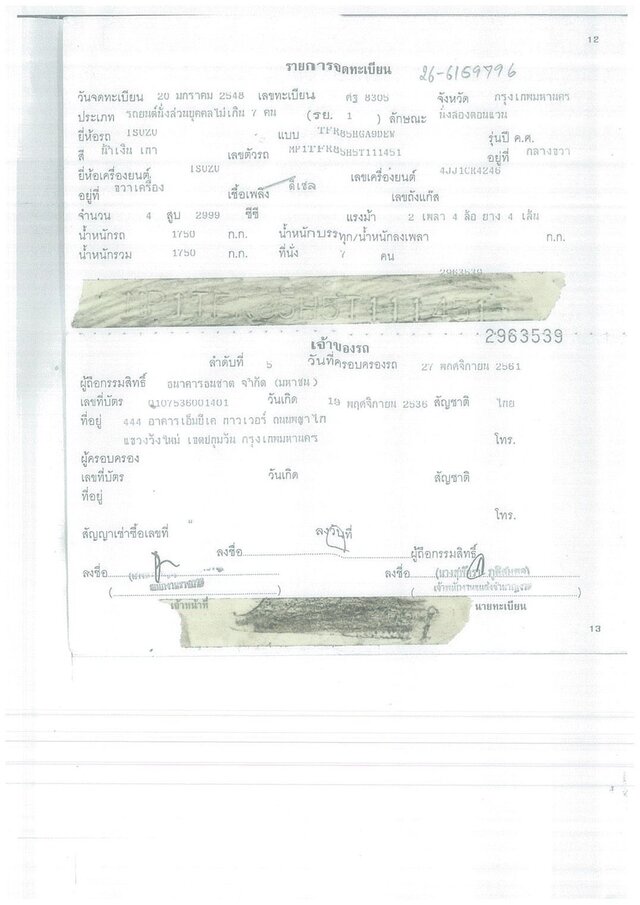 12
รายการจดทะเบียน 26-6159796
วันจดทะเบียน 20 มกราคม 2548 เลขทะเบียน ศฐ 8305 จังหวัด กรุงเทพมหานคร
ประเภท รถยนต์นั่งส่วนบุคคลไม่เกิน 7 คน (รย. 1 ) ลักษณะ นั่งสองตอนแวน
ยี่ห้อรถ ISUZU แบบ TFR85HGA9DEW รุ่นปี ค.ศ.
สี น้ำเงิน เทา เลขตัวรถ MP1TFR85H5T111451 อยู่ที่ กลางขวา
ยี่ห้อเครื่องยนต์ ISUZU เลขเครื่องยนต์ 4JJ1CR4246
อยู่ที่ ขวาเครื่อง เชื้อเพลิง ดีเซล เลขถังแก๊ส
จำนวน 4 สูบ 2999 ซีซี แรงม้า 2 เพลา 4 ล้อ ยาง 4 เส้น
น้ำหนักรถ 1750 ก.ก. น้ำหนักบรรทุก/น้ำหนักลงเพลา ก.ก.
น้ำหนักรวม 1750 ก.ก. ที่นั่ง 7 คน
2963539
MP1TFR85H5T111451
2963539
เจ้าของรถ
ลำดับที่ 6 วันที่ครอบครองรถ 27 พฤศจิกายน 2561
ผู้ถือกรรมสิทธิ์ ธนาคารธนชาต จำกัด (มหาชน)
เลขที่บัตร 0107536001401 วันเกิด 19 พฤศจิกายน 2536 สัญชาติ ไทย
ที่อยู่ 444 อาคารเอ็มบีเค ทาวเวอร์ ถนนพญาไท
แขวงวังใหม่ เขตปทุมวัน กรุงเทพมหานคร โทร.
ผู้ครอบครอง
เลขที่บัตร วันเกิด สัญชาติ
ที่อยู่
โทร.
สัญญาเช่าซื้อเลขที่ ลงวันที่
ลงชื่อ ผู้ถือกรรมสิทธิ์
ลงชื่อ ลงชื่อ
เจ้าหน้าที่ นายทะเบียน
13